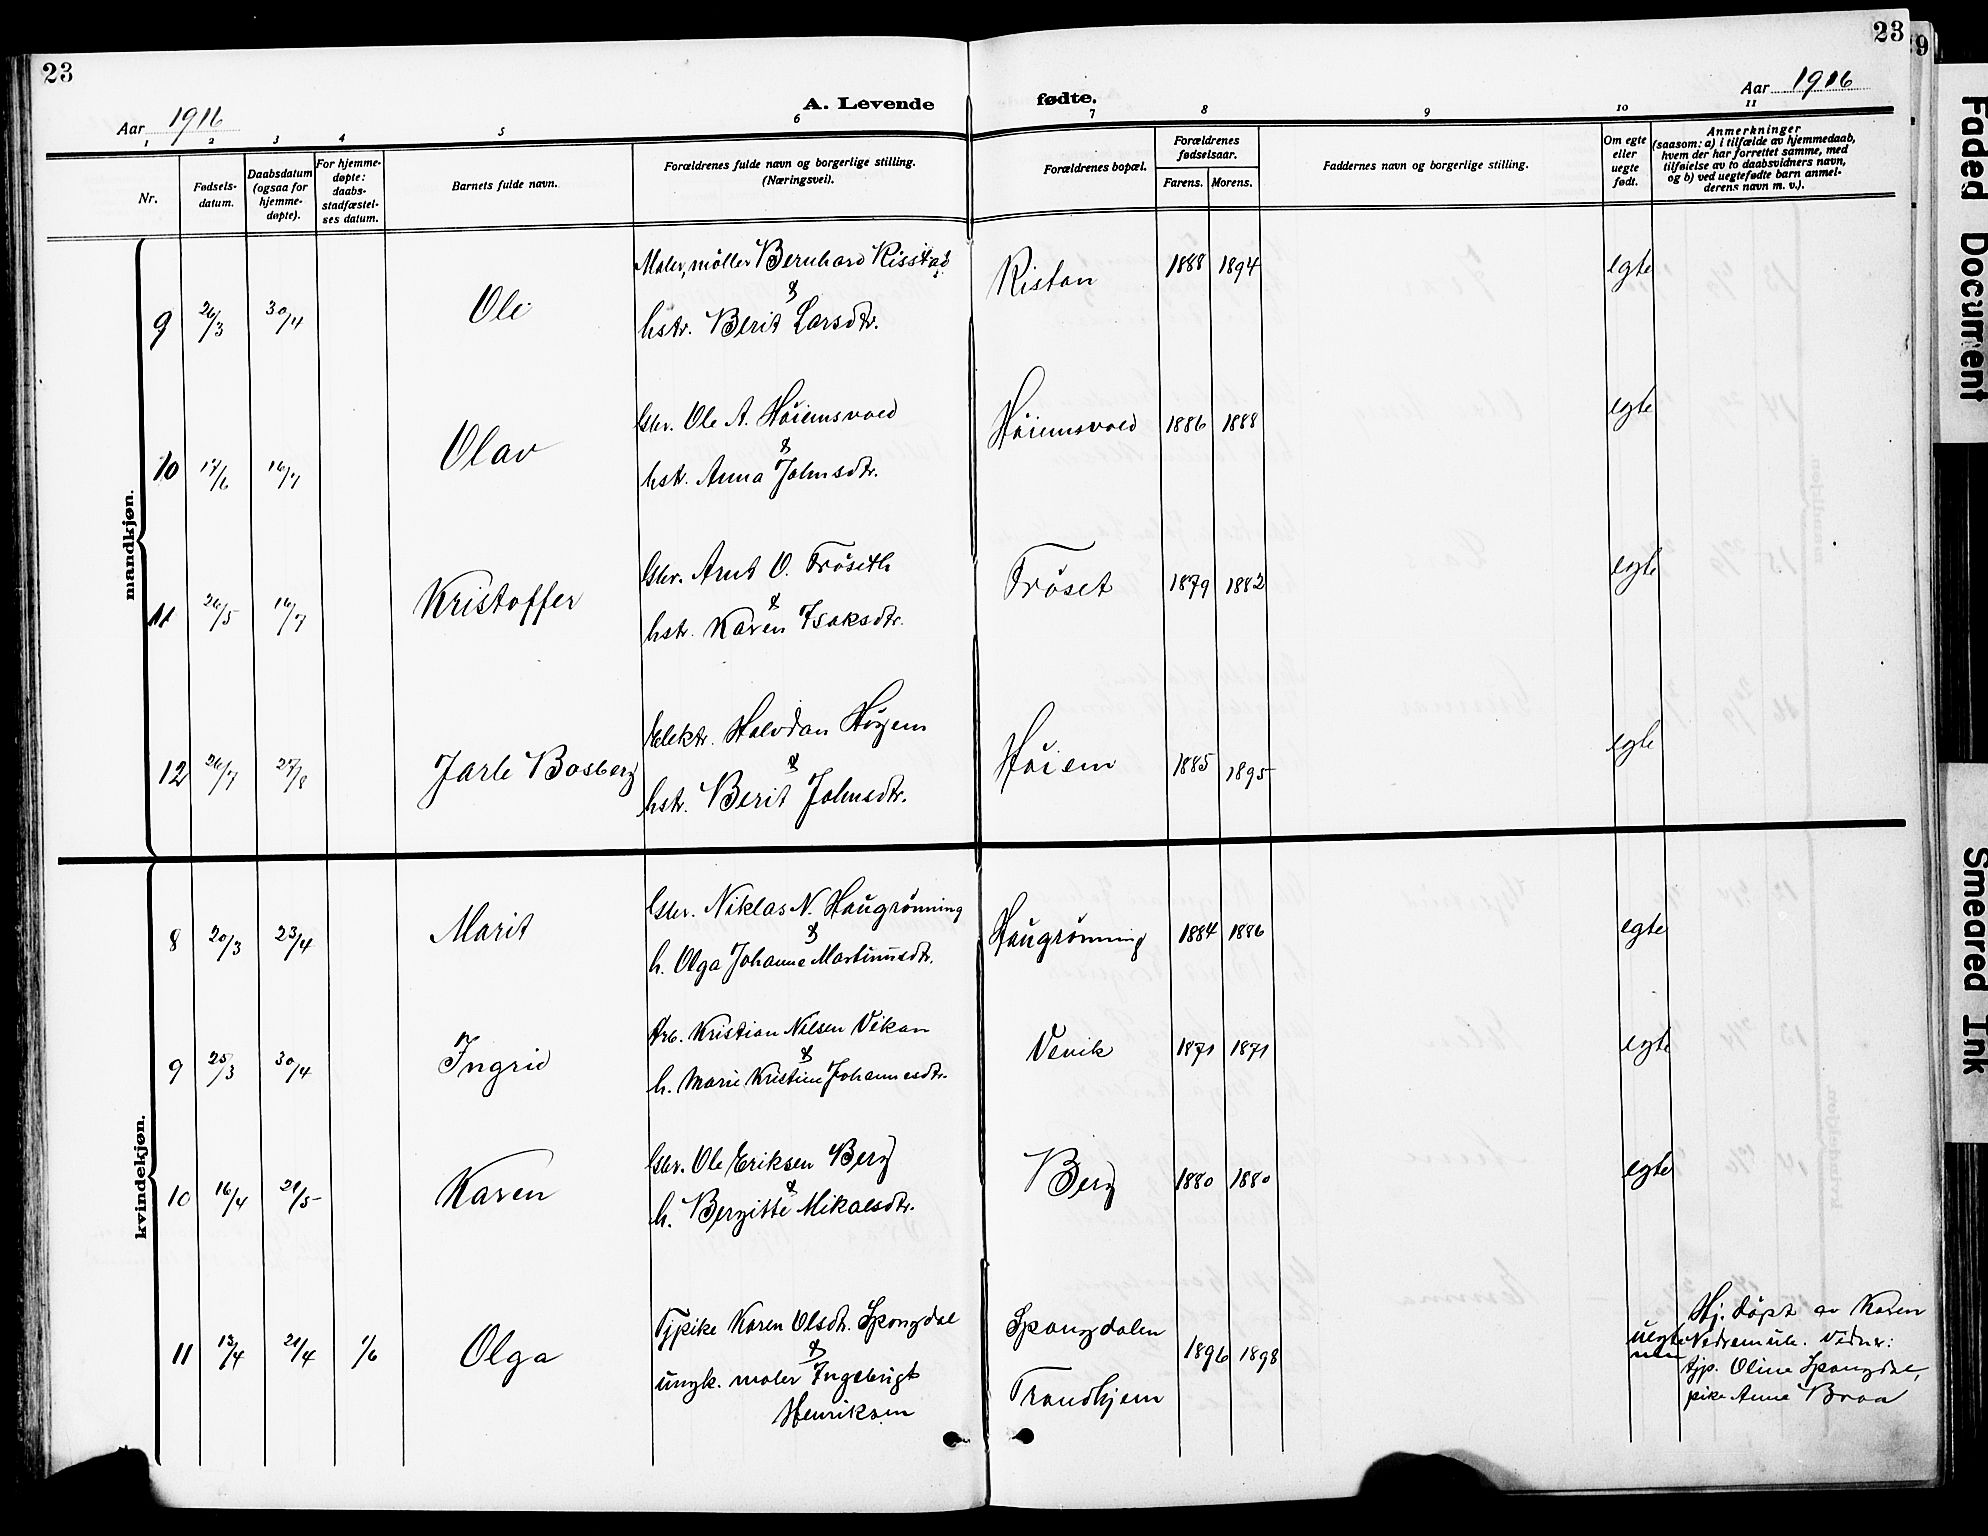 23
23
A. Levende fødte.
Aar 1916
Aar 1916
1 2 3 4 5 6 7 8 9 10 11
Nr.
Fødsels-
datum.
Daabsdatum
(ogsaa for
hjemme-
døpte).
For hjemme-
døpte:
daabs-
stadfæstel-
ses datum.
Barnets fulde navn.
Forældrenes fulde navn og borgerlige stilling.
(Næringsvei).
Forældrenes bopæl.
Forældrenes
fødselsaar.
Farens. Morens.
Faddernes navn og borgerlige stilling.
Om egte
eller
uegte
født.
Anmerkninger
(saasom: a) i tilfælde av hjemmedaab,
hvem der har forrettet samme, med
tilføielse av to daabsvidners navn,
og b) ved uegtefødte barn anmel-
derens navn m. v.).
mandkjøn.
Maler, møller Bernhard Risstad
&
9 26/3 30/4 Ole hstr. Berit Larsdtr. Ristan 1888 1894 egte
Gbr. Ole A. Höiemsvold
&
10 17/6 16/7 Olav hstr. Anna Johnsdtr. Höiemsvold 1886 1888 egte
Gbr. Arnt O. Fröseth
&
11 26/5 16/7 Kristoffer hstr. Karen Isaksdtr. Fröset 1879 1882 egte
Elektr. Halvdan Höyem
&
12 26/7 27/8 Jarle Bosberg hstr. Berit Johnsdtr. Höiem 1885 1895 egte
kvindekjøn.
Gbr. Niklas N. Haugrönning
&
8 20/3 23/4 Marit h. Olga Johanne Martinusdtr. Haugrönning 1884 1886 egte
Arb. Kristian Nilsen Vikan
&
9 25/3 30/4 Ingrid h. Marie Kristine Johannesdtr. Vevik 1871 1871 egte
Gbr. Ole Eriksen Berg
&
10 16/4 21/5 Karen h. Bergitte Mikaelsdtr. Berg 1880 1880 egte
Tjpike Karen Olsdtr. Spongdal
&
11 12/4 21/4 1/6 Olga ungk. maler Ingebrigt
Henriksen
Spongdalen
Trondhjem
1896 1898
uegte
Hj. döpt av Karen
Vidner:
tjp. Oline Spongdal,
pike Anna Braa
Faded Document
Smeared Ink